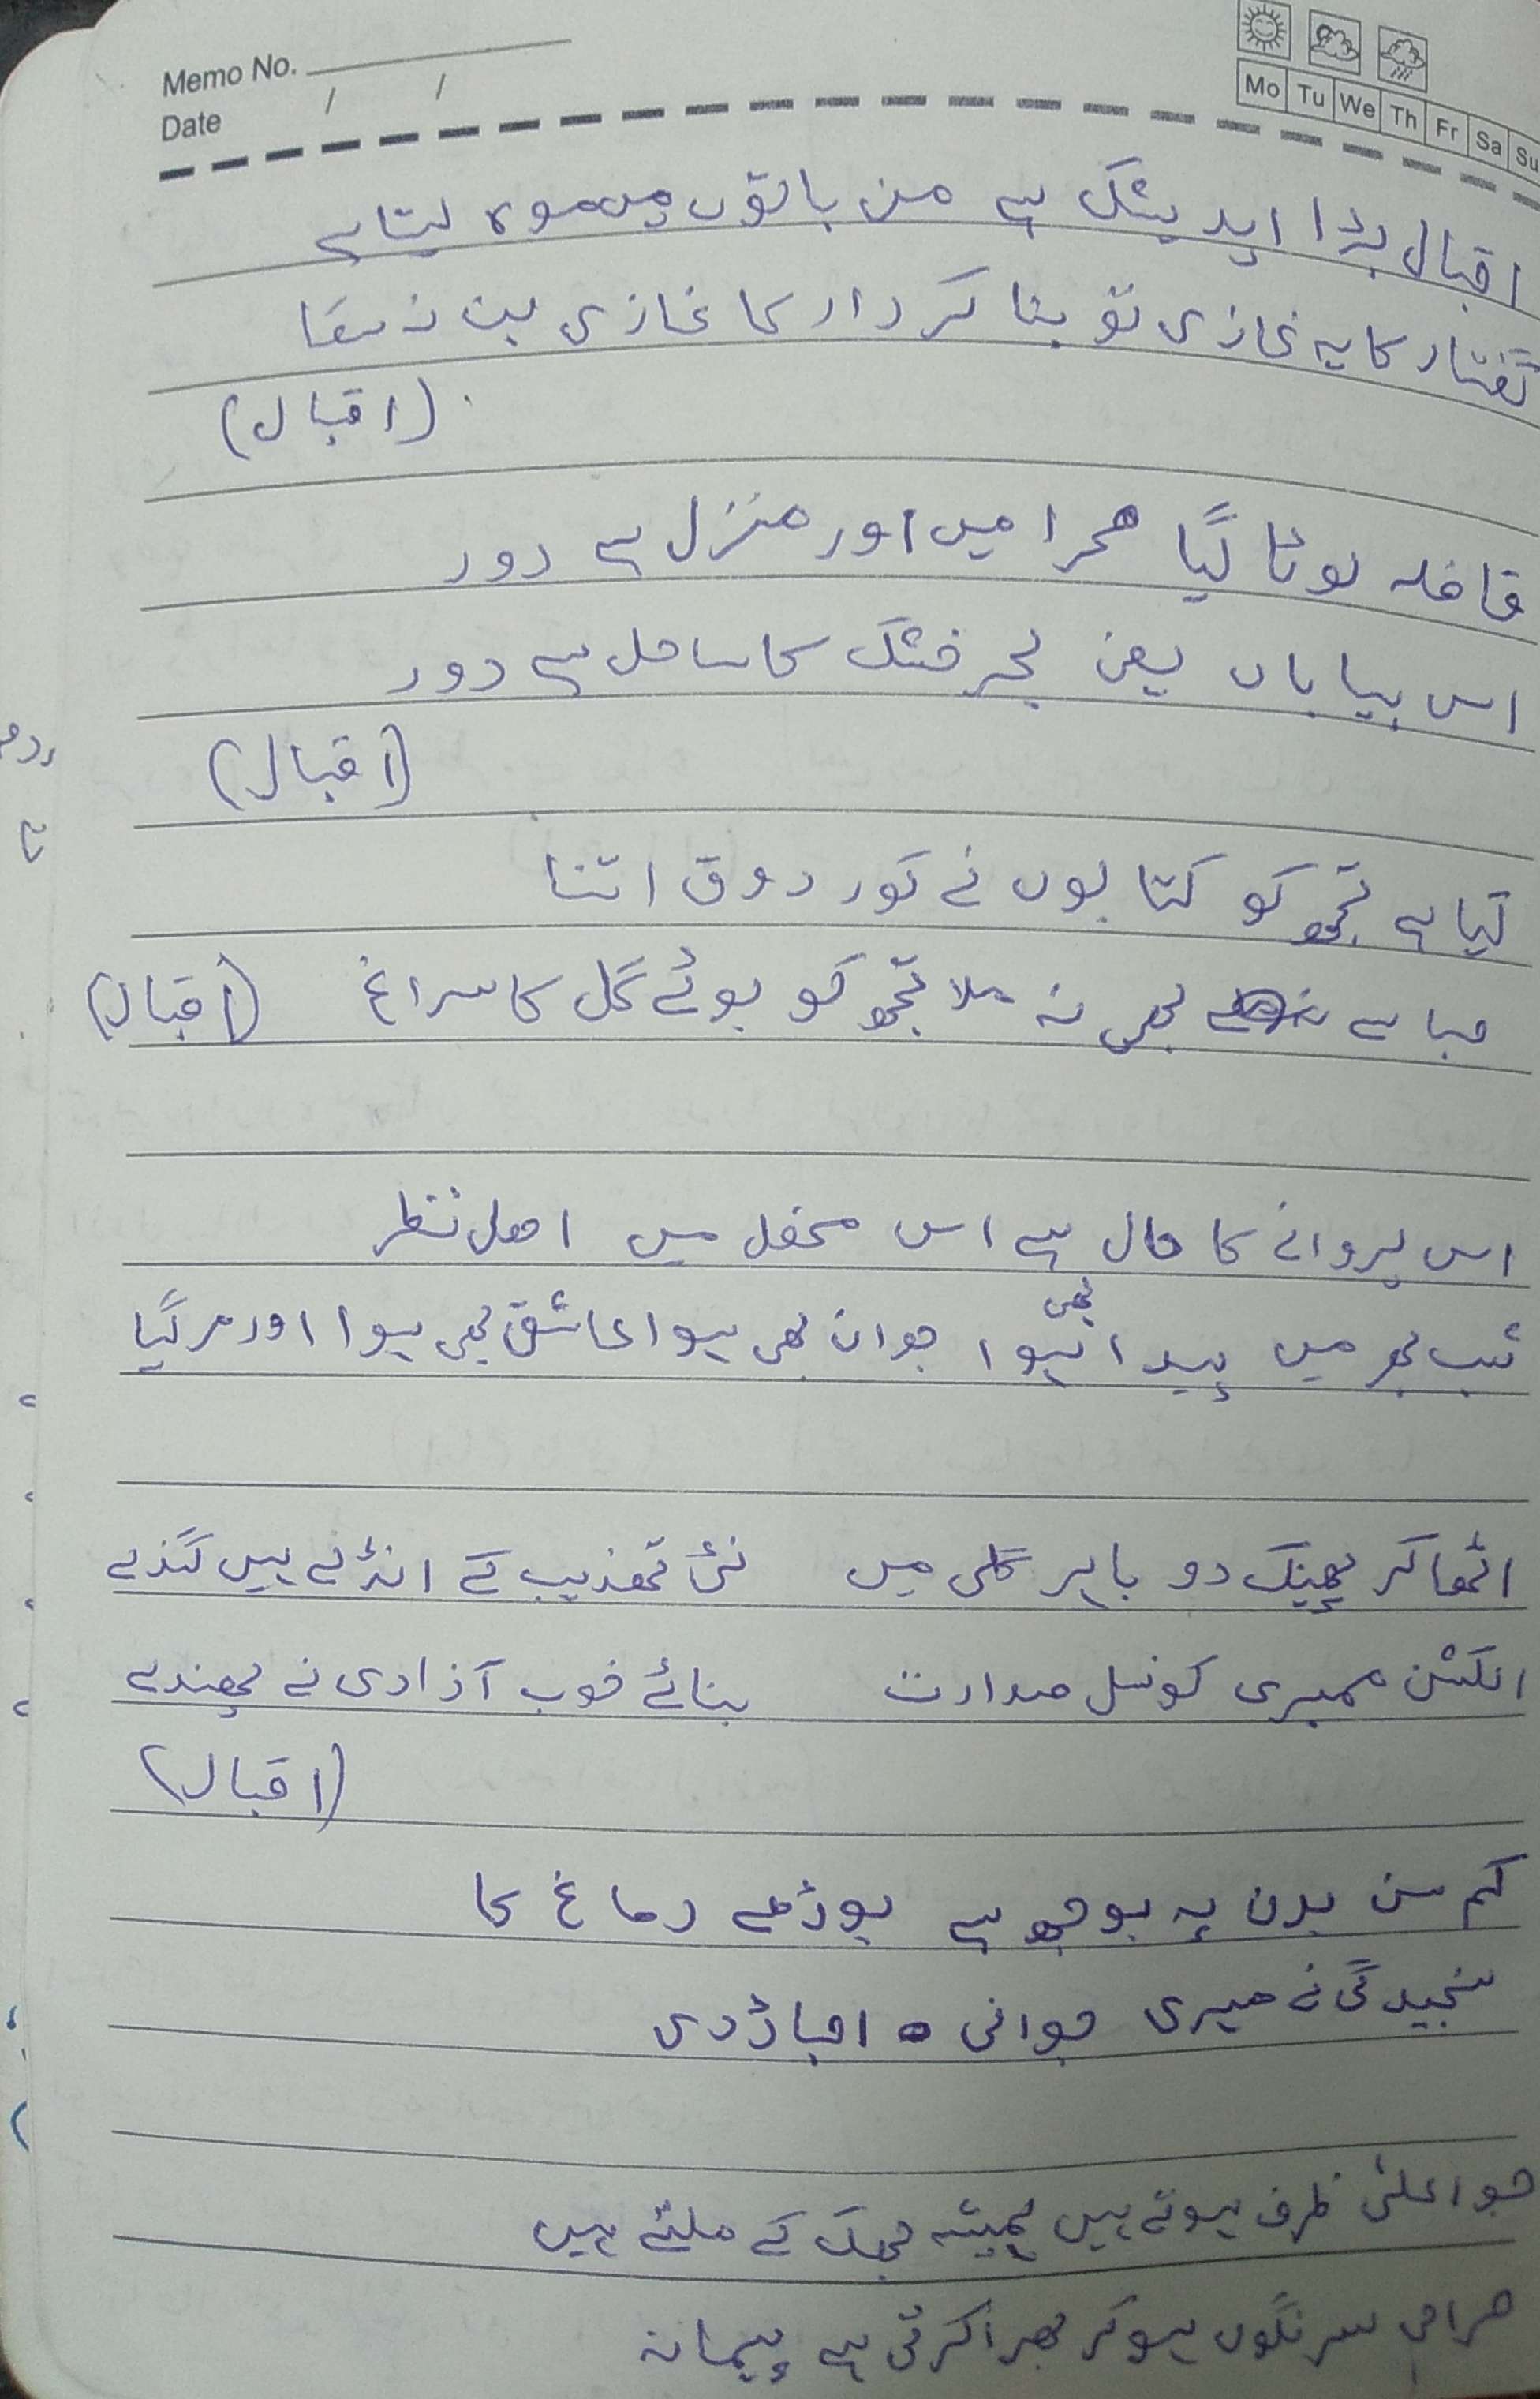 Memo No.
Date / /
Mo Tu We Th Fr Sa Su
اقبال بڑا اپدیشک ہے من باتوں میں موہ لیتا ہے
گفتار کا یہ غازی تو بنا کردار کا غازی بن نہ سکا
(اقبال)
قافلہ لوٹا گیا صحرا میں اور منزل ہے دور
اس بیاباں یعنی بحر خشک کا ساحل ہے دور
(اقبال)
کیا ہے تجھ کو کتابوں نے کور ذوق اتنا
صبا سے بھی نہ ملا تجھ کو بوئے گل کا سراغ (اقبال)
اس پروانے کا حال ہے اس محفل میں اھل نظر
شب بھر میں پیدا بھی ہوا جوان بھی ہوا عاشق بھی ہوا اور مر گیا
اٹھا کر پھینک دو باہر گلی میں نئی تھذیب کے انڈے ہیں گندے
الکشن ممبری کونسل صدارت بنائے خوب آزادی نے پھندے
(اقبال)
کم سن بدن پہ بوجھ ہے بوڑھے دماغ کا
سنجیدگی نے میری جوانی اجاڑ دی
جو اعلیٰ ظرف ہوتے ہیں ہمیشہ جھک کے ملتے ہیں
صراحی سرنگوں ہو کر بھرا کرتی ہے پیمانہ